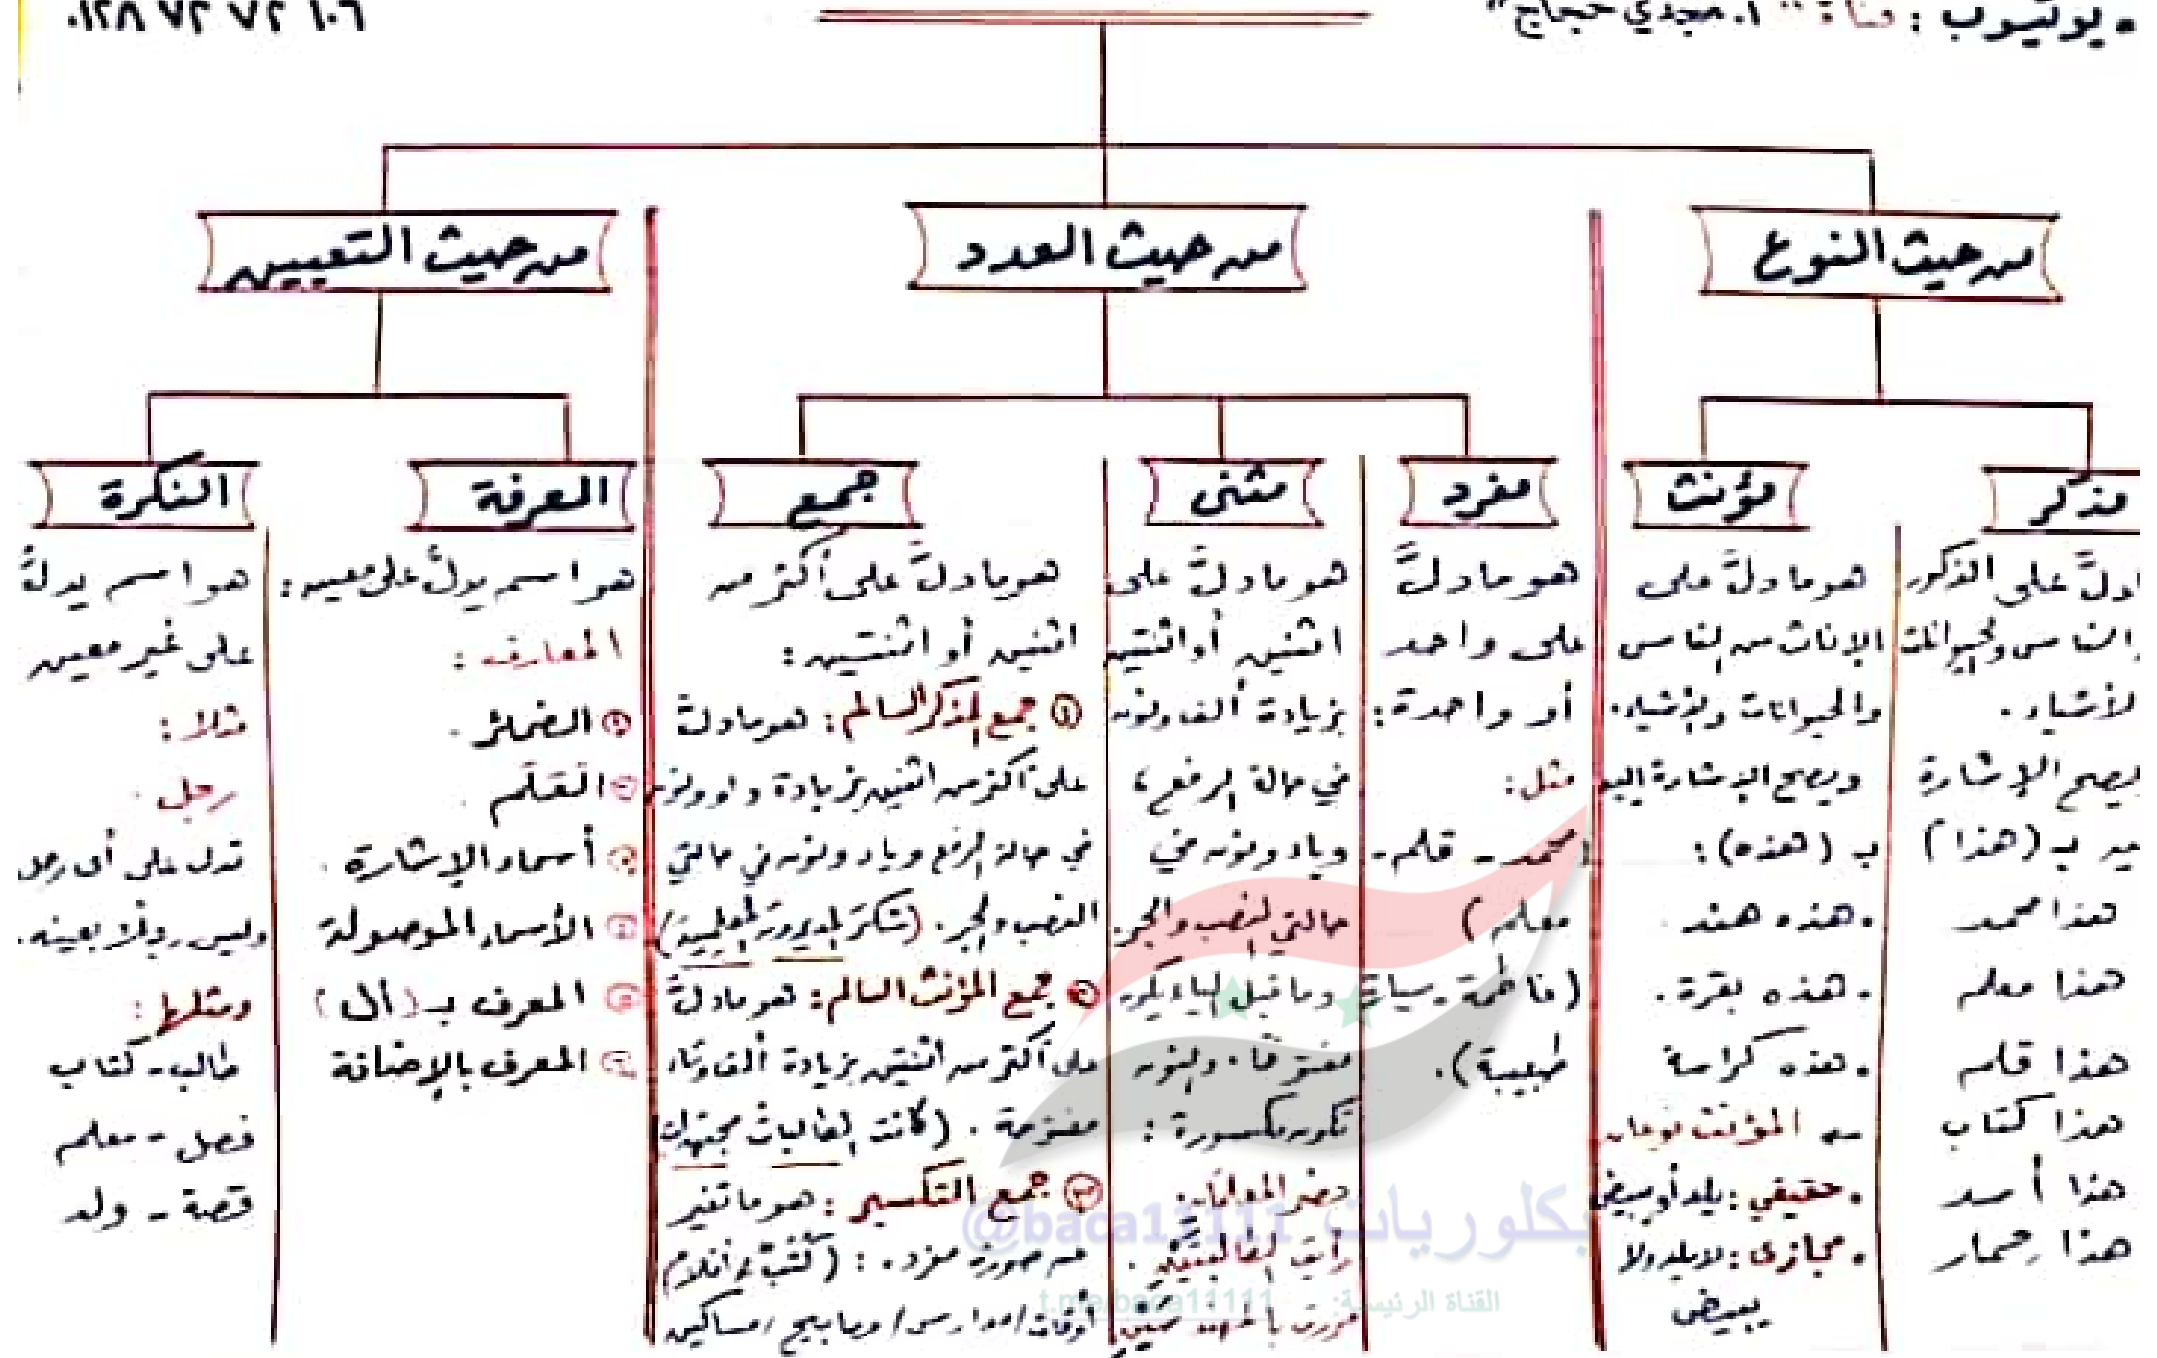 • يوتيوب : قناة " أ. مجدي حجاج "
٠١٢٨ ٧٢ ٧٢ ١٠٦
من حيث النوع
من حيث العدد
من حيث التعيين
مذكر
دلَّ على الذكور
الناس والحيوانات
الأشياء .
يصح الإشارة
ـيه بـ (هذا)
هذا محمد
هذا معلم
هذا قلم
هذا كتاب
هذا أسد
هذا حمار
مؤنث
هو ما دلَّ على
الإناث من الناس
والحيوانات والأشياء .
ويصح الإشارة إليه
بـ (هذه) :
• هذه هند .
• هذه بقرة .
• هذه كراسة
المؤنث نوعان
• حقيقي : يلد أو يبيض
• مجازى : لا يلد ولا
يبيض
مفرد
هو ما دلَّ
على واحد
أو واحدة :
مثل :
(محمد - قلم -
معلم)
(فاطمة - سيارة
طبيبة) .
مثنى
هو ما دلَّ على
اثنين أو اثنتين
بزيادة ألف ونون
في حالة الرفع ،
وياء ونون في
حالتي النصب والجر .
وما قبل الياء يكون
مفتوحًا . والنون
تكون مكسورة :
حضر المعلمان .
رأيت الطالبتين .
مررت بالمهندسَيْنِ
جمع
هو ما دلَّ على أكثر من
اثنين أو اثنتين :
① جمع المذكر السالم : هو ما دلَّ
على أكثر من اثنين بزيادة واو ونون
في حالة الرفع وياء ونون في حالتي
النصب والجر . (شكر المديرون المعلمين)
② جمع المؤنث السالم : هو ما دلَّ
على أكثر من اثنتين بزيادة ألف وتاء
مفتوحة . (كانت الطالبات مجتهدات
③ جمع التكسير : هو ما تغير
عن صورة مفرده : (كُتُب / أقلام
أوقات / مدارس / مصابيح / مساكين
المعرفة
هو اسم يدلُّ على معين :
المعارف :
① الضمائر .
② العَلَم .
③ أسماء الإشارة .
④ الأسماء الموصولة
⑤ المعرف بـ (أل)
⑥ المعرف بالإضافة
النكرة
هو اسم يدلُّ
على غير معين
مثلا :
رجل .
تدل على أى رجل
وليس رجلًا بعينه .
ومثلها :
طالب - كتاب
فصل - معلم
قصة - ولد
بكلوريات @baca11111
القناة الرئيسية: t.me/baca11111